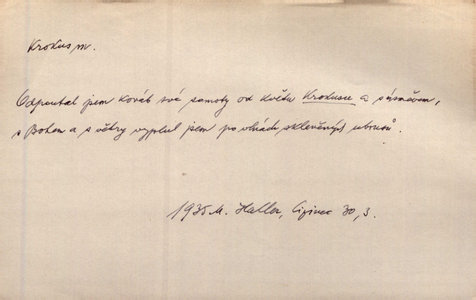 Krokus m.
Odpoutal jem koráb své samoty od květu Krokusu a s úsměvem,
s Bohem a s větry vyplul jsem po vlnách skleněných ubrusů.
1935 M. Haller, Cizinec 30, 3.